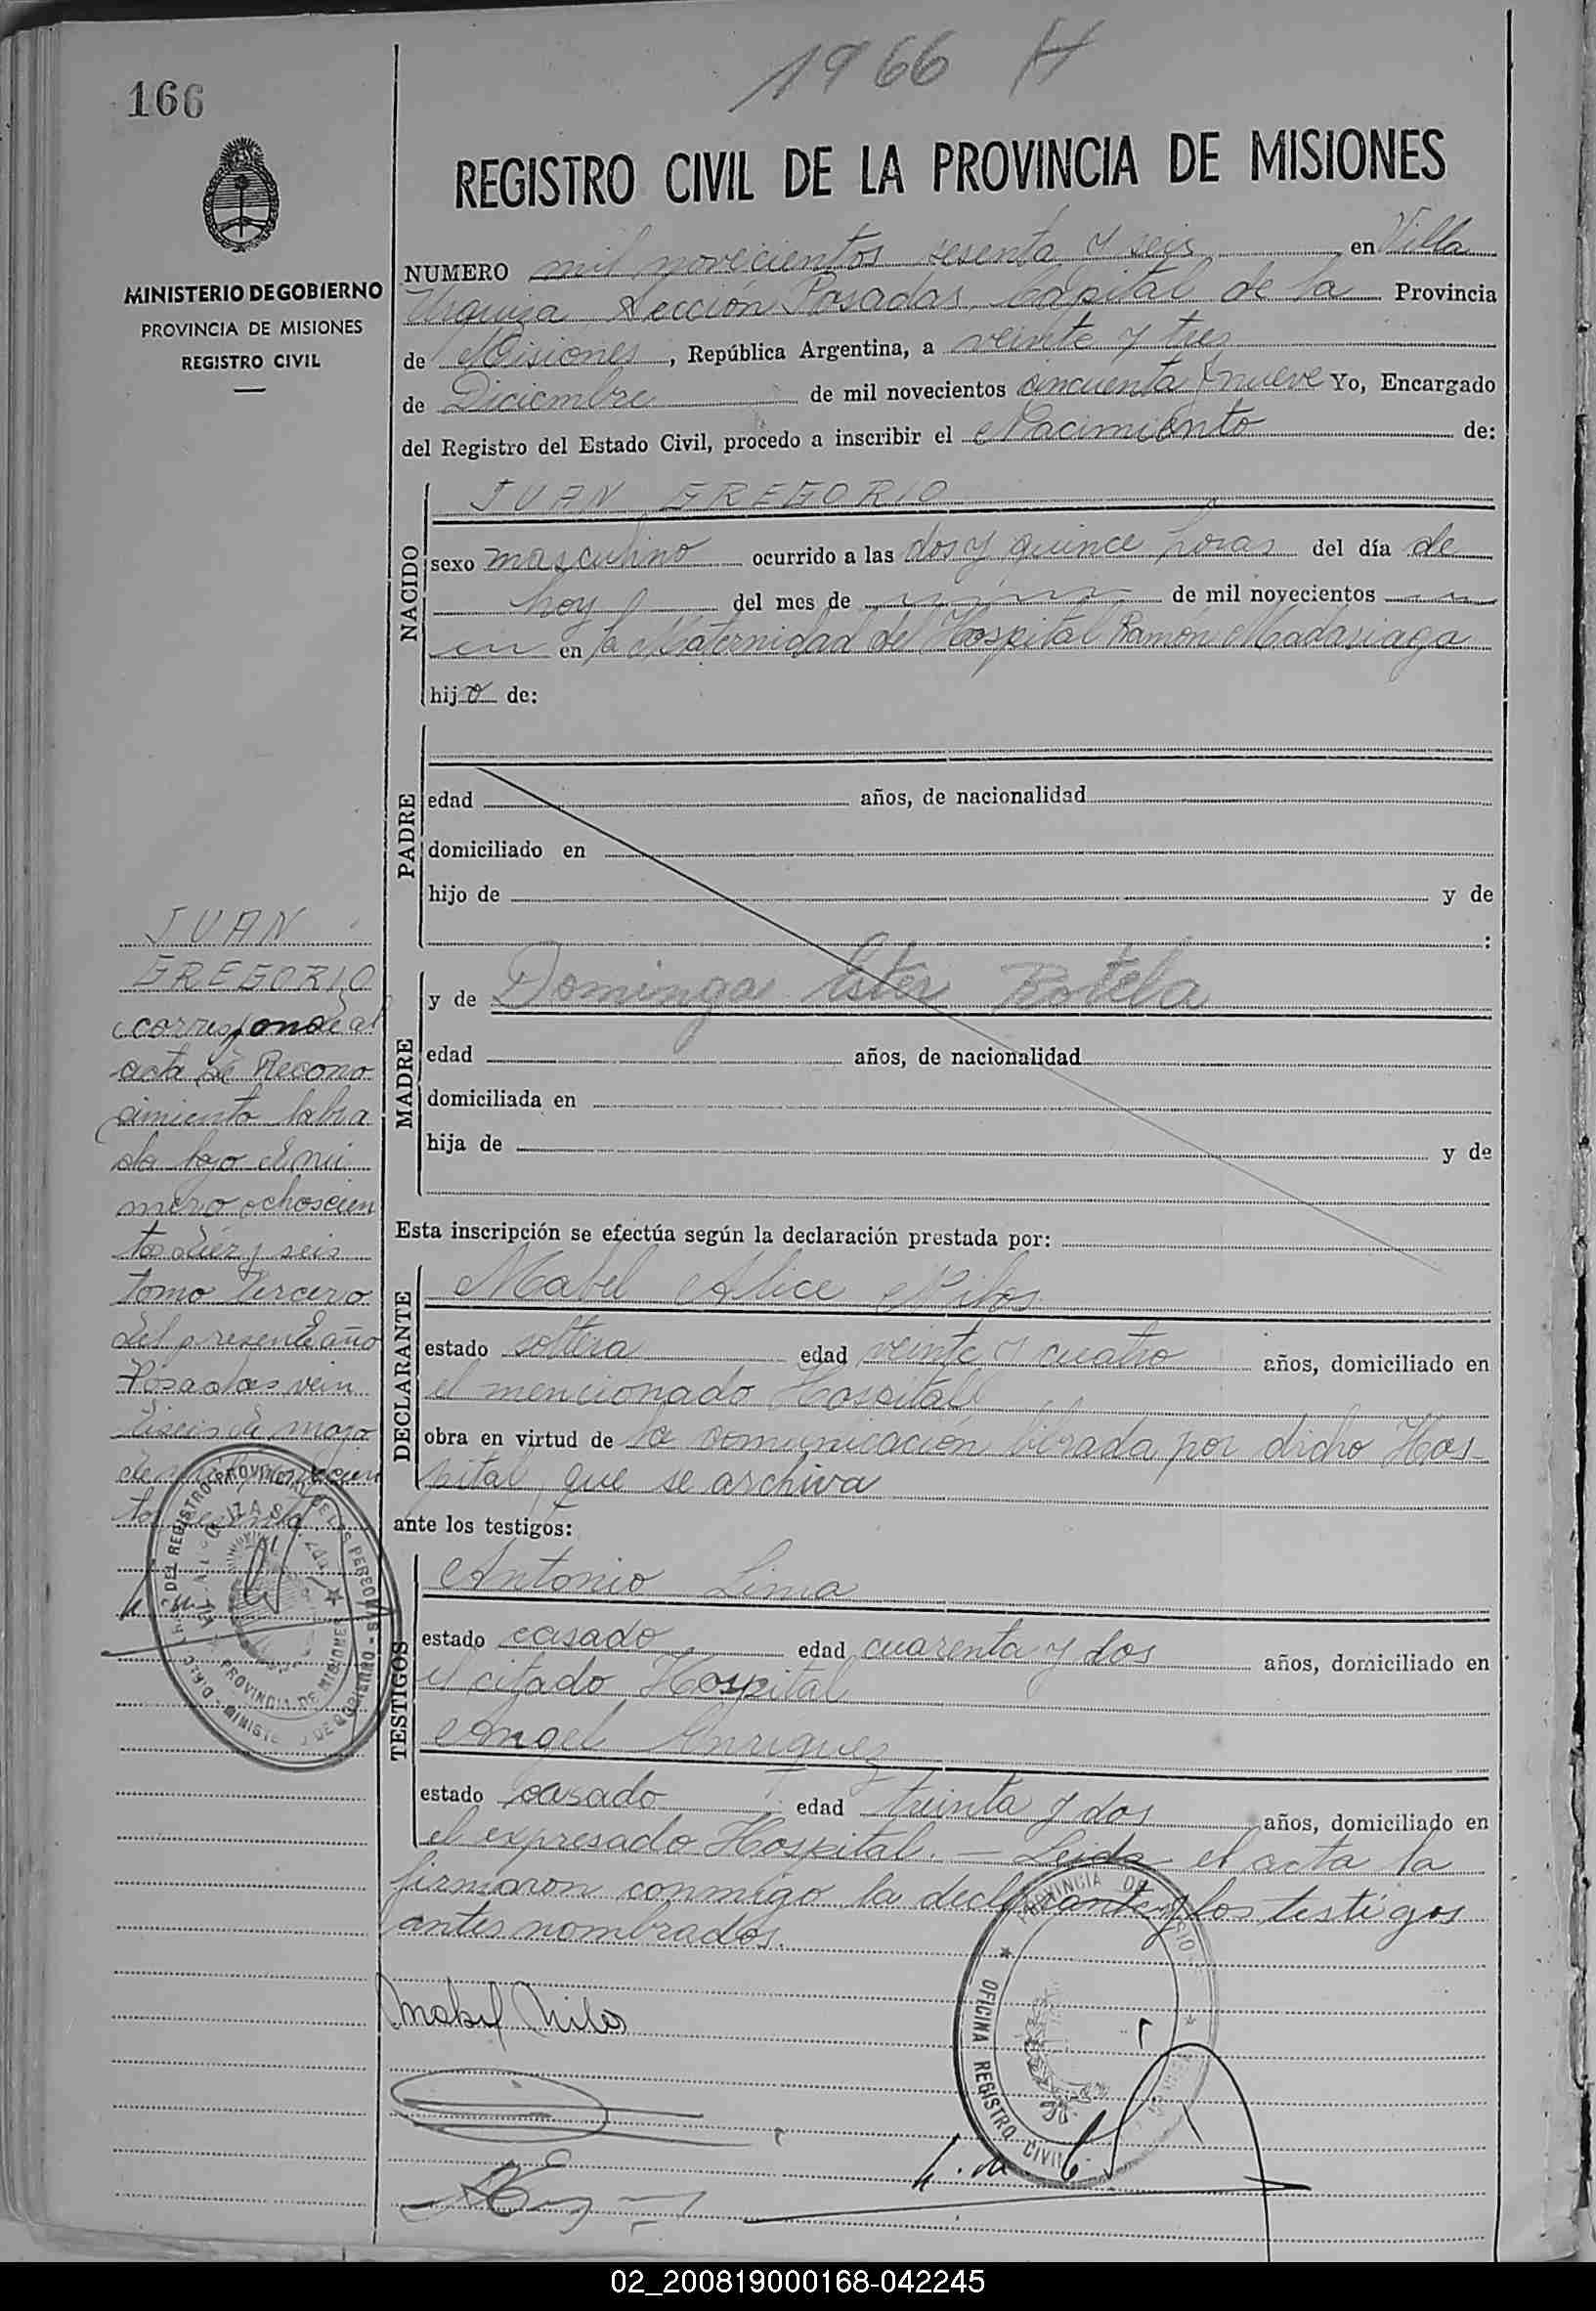 1966 H
166
REGISTRO CIVIL DE LA PROVINCIA DE MISIONES
MINISTERIO DE GOBIERNO
PROVINCIA DE MISIONES
REGISTRO CIVIL
NUMERO mil novecientos sesenta y seis en Villa
Urquiza Sección Posadas, Capital de la Provincia
de Misiones, República Argentina, a veinte y tres
de Diciembre de mil novecientos cincuenta y nueve Yo, Encargado
del Registro del Estado Civil, procedo a inscribir el Nacimiento de:
NACIDO
JUAN GREGORIO
sexo masculino ocurrido a las dos y quince horas del día de
hoy del mes de de mil novecientos
en la Maternidad del Hospital Ramón Madariaga
hijo de:
PADRE
edad años, de nacionalidad
domiciliado en
hijo de y de
:
MADRE
y de Dominga Ester Botela
edad años, de nacionalidad
domiciliada en
hija de y de
Esta inscripción se efectúa según la declaración prestada por:
DECLARANTE
Mabel Alice Nilos
estado soltera edad veinte y cuatro años, domiciliado en
el mencionado Hospital
obra en virtud de la comunicación librada por dicho Hos-
pital, que se archiva
ante los testigos:
TESTIGOS
Antonio Lima
estado casado edad cuarenta y dos años, domiciliado en
el citado Hospital
Angel Enriquez
estado casado edad treinta y dos años, domiciliado en
el expresado Hospital. — Leida el acta la
firmaron conmigo la declarante y los testigos
antes nombrados.
Mabel Nilos
JUAN
GREGORIO
corresponde al
acta de Recono
cimiento labra
da bajo el nú
mero ochocien
tos diez y seis
tomo tercero
del presente año
Posadas vein
tiseis de mayo
de mil novecien
tos sesenta
PROVINCIA DE MISIONES
OFICINA REGISTRO CIVIL
02_200819000168-042245